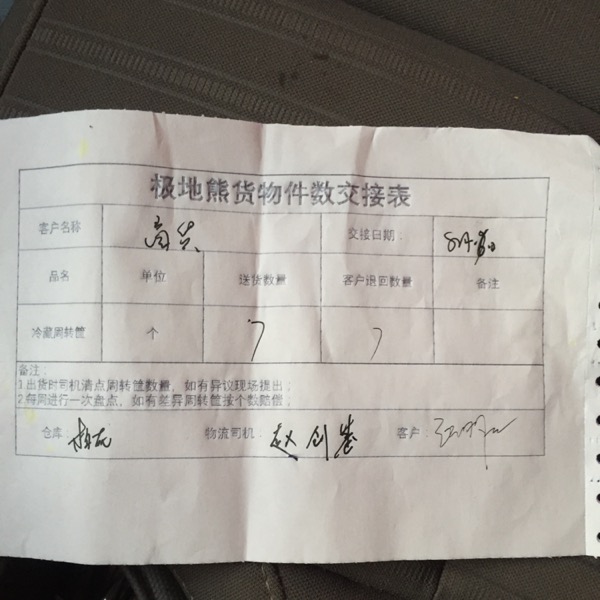 极地熊货物件数交接表
客户名称 交接日期：
品名 单位 送货数量 客户退回数量 备注
冷藏周转筐 个 7 7
备注：
1.出货时司机清点周转筐数量，如有异议现场提出；
2.每周进行一次盘点，如有差异周转筐按个数赔偿；
仓库： 物流司机： 赵 客户：